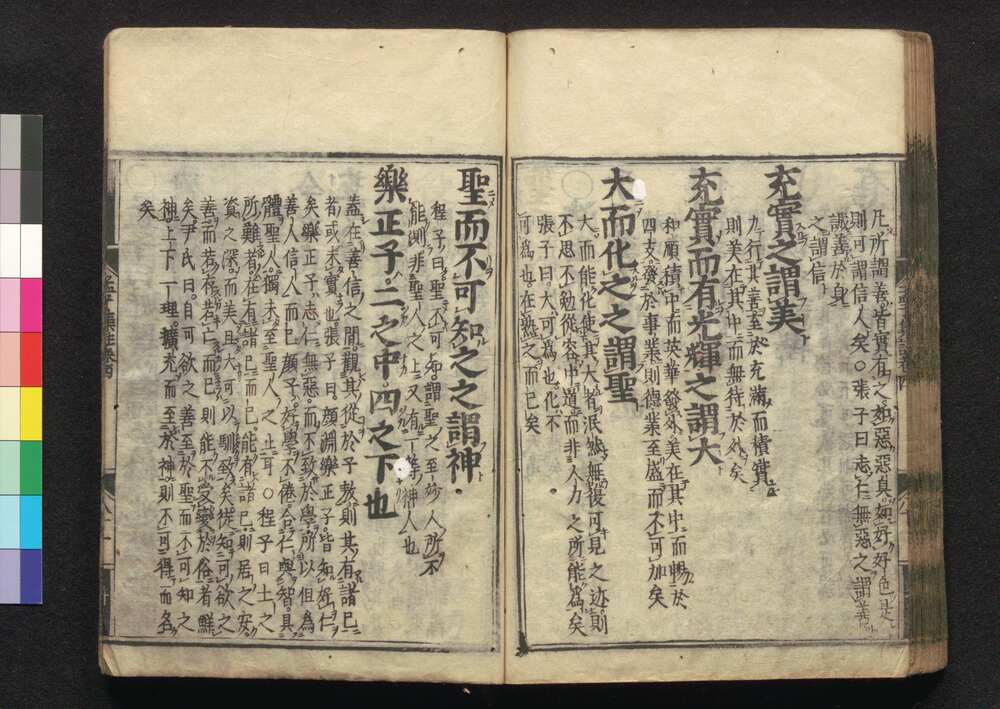 凡所謂善皆實有之如惡惡臭如好好色是
則可謂信人矣○張子曰志仁無惡之謂善
誠善於身
之謂信
充實之謂美
力行其善至於充滿而積實
則美在其中而無待於外矣
充實而有光輝之謂大
和順積中而英華發外美在其中而暢於
四支發於事業則德業至盛而不可加矣
大而化之之謂聖
大而能化使其大者泯然無復可見之迹則
不思不勉從容中道而非人力之所能為矣
張子曰大可為也化不
可為也在熟之而已矣
聖而不可知之之謂神
程子曰聖不可知謂聖之至妙人所不
能測非聖人之上又有一等神人也
樂正子二之中四之下也
蓋在善信之間觀其從於子敖則其有諸已
者或未實也張子曰顏淵樂正子皆知好仁
矣樂正子志仁無惡而不致於學所以但為
善人信人而已顏子好學不倦合仁與智具
體聖人獨未至聖人之止耳○程子曰士之
所難者在有諸已而已能有諸已則居之安
資之深而美且大可以馴致矣徒知可欲之
善而若存若亡而已則能不受變於俗者鮮
矣尹氏曰自可欲之善至於聖而不可知之
神上下一理擴充而至於神則不可得而名
矣